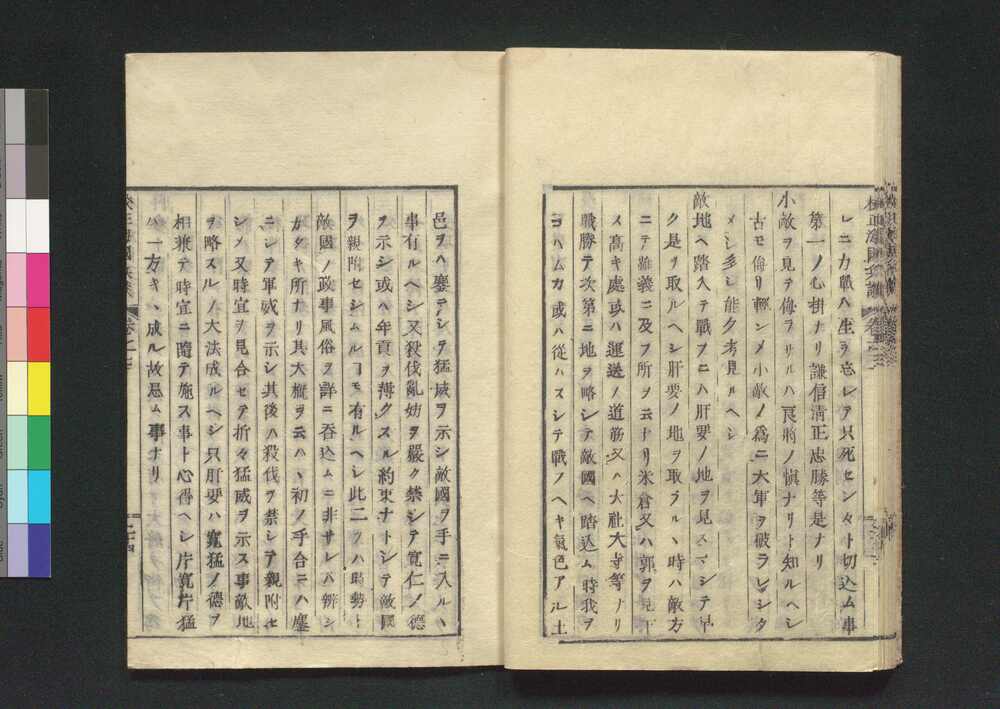 レニカ戦ハ生ヲ忘レテ只死セン々ト切込ム事
第一ノ心掛ナリ謙信清正忠勝等是ナリ
小敵ヲ見テ侮ラサルハ良將ノ愼ナリト知ルヘシ
古モ侮リ輕シメ小敵ノ爲ニ大軍ヲ破ラレシタ
メシ多シ能ク考見ルヘシ
敵地ヘ踏入テ戰フニハ肝要ノ地ヲ見スマシテ早
ク是ヲ取ルヘシ肝要ノ地ヲ取ラルヽ時ハ敵方
ニテ難義ニ及フ所ヲ云ナリ米倉又ハ郭ヲ見下
ス高キ處或ハ運送ノ道筋又ハ大社大寺等ナリ
戰勝テ次第ニ地ヲ略シテ敵國ヘ踏込ム時我ヲ
コハムカ或ハ從ハスシテ戰フヘキ氣色アル土
邑ヲハ鏖テシテ猛威ヲ示シ敵國ヲ手ニ入ルヽ
事有ルヘシ又殺伐亂妨ヲ嚴ク禁シテ寛仁ノ德
ヲ示シ或ハ年貢ヲ薄クスル約束ナトシテ敵國
ヲ親附セシムルヿモ有ルヘシ此二ツハ時勢ト
敵國ノ政事風俗ヲ詳ニ呑込ムニ非サレハ辨シ
カタキ所ナリ其大槪ヲ云ハヽ初ノ手合ニハ鏖
ニシテ軍威ヲ示シ其後ハ殺伐ヲ禁シテ親附セ
シメ又時宜ヲ見合セテ折々猛威ヲ示ス事敵地
ヲ略スルノ大法成ルヘシ只肝要ハ寛猛ノ德ヲ
相兼テ時宜ニ隨テ施ス事ト心得ヘシ片寛片猛
ハ一方キヽ成ル故忌ム事ナリ